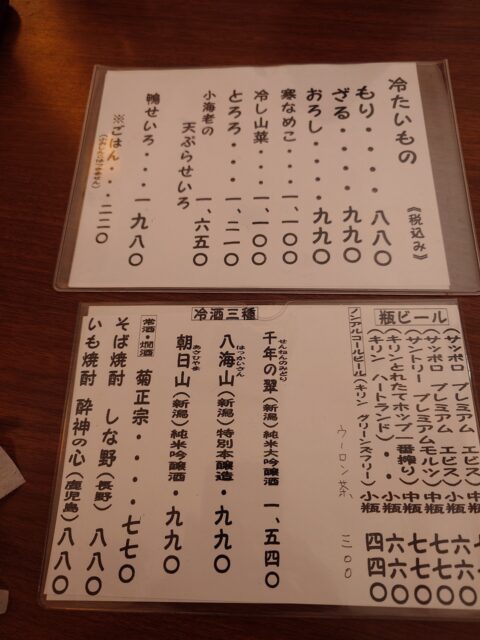 冷たいもの
《税込み》
もり・・・・八八〇
ざる・・・・九九〇
おろし・・・・九九〇
寒なめこ・・・一、一〇〇
冷し山菜・・・一、一〇〇
とろろ・・・・一、二一〇
小海老の
天ぷらせいろ
一、六五〇
鴨せいろ・・・一九八〇
※ごはん・・・二二〇
瓶ビール
(サッポロ プレミアム エビス)中瓶
(サッポロ プレミアム エビス)小瓶
(サントリー プレミアムモルツ)中瓶 七七〇
(キリンとれたてホップ一番搾り)中瓶 七七〇
(キリン ハートランド)・・小瓶 六六〇
ノンアルコールビール(キリン グリーンズフリー)小瓶 四四〇
ウーロン茶 三〇〇
冷酒三種
せんねんのみどり
千年の翠(新潟)純米大吟醸酒 一、五四〇
はっかいさん
八海山(新潟)特別本醸造・九九〇
あさひやま
朝日山(新潟)純米吟醸酒・九九〇
常酒・燗酒
菊正宗・・・・七七〇
そば焼酎 しな野(長野)八八〇
いも焼酎 酔神の心(鹿児島)八八〇